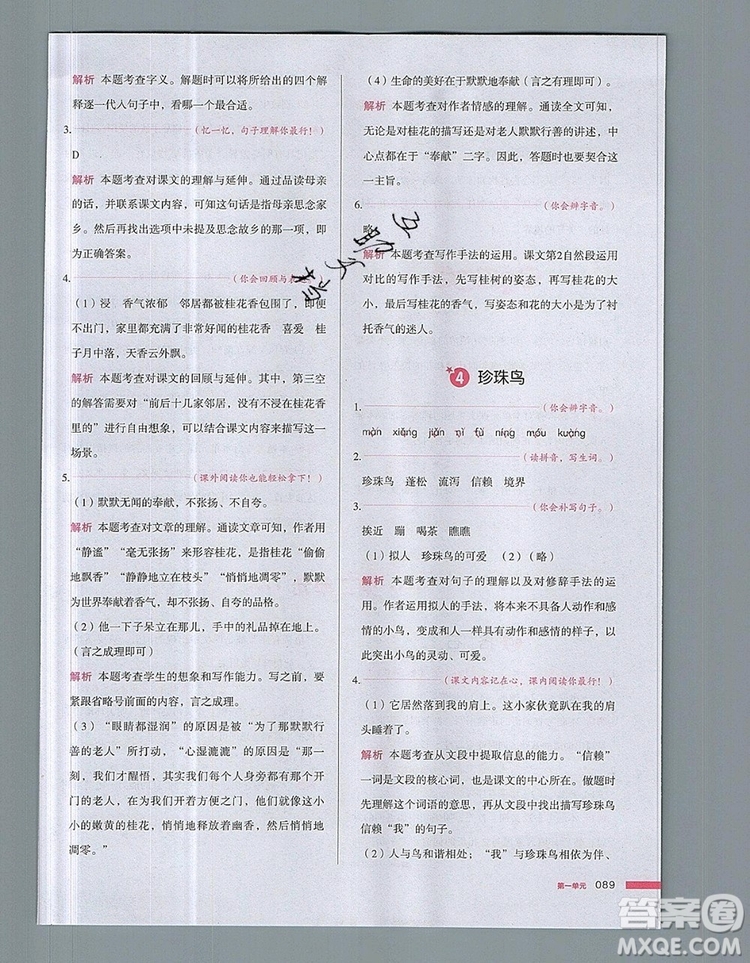 解析 本题考查字义。解题时可以将所给出的四个解
释逐一代入句子中，看哪一个最合适。
3.
（忆一忆，句子理解你最行！）
D
解析 本题考查对课文的理解与延伸。通过品读母亲
的话，并联系课文内容，可知这句话是指母亲思念家
乡。然后再找出选项中未提及思念故乡的那一项，即
为正确答案。
4.
（你会回顾与
（1）浸 香气浓郁 邻居被桂花香包围了，即使
不出门，家里充满了非常好闻的桂花香 喜爱 桂
子月中落，天香云外飘。
解析 本题考查对课文的回顾与延伸。其中，第三空
的解答需要对“前后十几家邻居，没有不浸在桂花香
里的”进行自由想象，可以结合课文内容描写出这一
场景。
5.
（课外阅读你也能轻松拿下！）
（1）默默无闻的奉献，不张扬、不自夸。
解析 本题考查对文章的理解。通读文章可知，作者用
“静谧”“毫无张扬”来形容桂花，是指桂花“偷偷
地飘香”“静静地伫立在枝头”“悄悄地凋零”，默默
为世界奉献着香气，从不张扬、自夸的品格。
（2）他一下子呆立在那儿，手中的礼品掉在地上。
（言之成理即可）
解析 本题考查学生的想象和写作能力。写之前，要
紧跟省略号前面的内容，言之成理。
（3）“眼睛都湿润”的原因是被“为了那默默行
善的老人”所打动，“心湿漉漉”的原因是“那一
刻，我们才醒悟，其实每个人身旁都有那不同的开
门的老人，在默默地为我们奉献着，他们就像这小
小的嫩黄的桂花，悄悄地释放着幽香，悄悄地
凋零。”
（4）生命的美好在于默默地奉献（言之有理即可）
解析 本题考查对作者情感的理解。通读全文可知，
无论是对桂花的描写还是对老人默默行善的讲述，中
心点都在于“奉献”二字。因此，答题时也要契合这
一主旨。
6.
（你会辨字音。）
略
解析 本题考查写作手法的运用。课文第2自然段运用
对比的写作手法，先写桂树的姿态、桂花的大小、
形状，最后写桂花的香气，写姿态和花的大小是为了衬
托香气的迷人。
4 珍珠鸟
1.
（你会辨字音。）
màn xiāng jiān nì fù níng móu kuàng
2.
（读拼音，写生词。）
珍珠鸟 蓬松 流泻 信赖 境界
3.
（你会补写句子。）
挨近 蹦 喝茶 瞧瞧
（1）拟人 珍珠鸟的可爱 （2）（略）
解析 本题考查对句子的理解以及对修辞手法的运
用。作者运用拟人的手法，将没有人类动作和
感情的小鸟，变成与人一样具有动作和情感的样子，以
此突出小鸟的灵动、可爱。
4.
（课文内容记在心，课内阅读你最行！）
（1）它居然落到我的肩上。这小家伙竟趴在我的肩
头睡着了。
解析 本题考查从文段中提取信息的能力。“信赖”
一词是文段的核心词，也是课文的中心所在。做题时
先理解这个词语的意思，再从文段中找出描写珍珠鸟
信赖“我”的句子。
（2）人与鸟和谐相处；“我”与珍珠鸟相互信任、相依为伴、
第一单元 089
答案圈
MXQE.COM